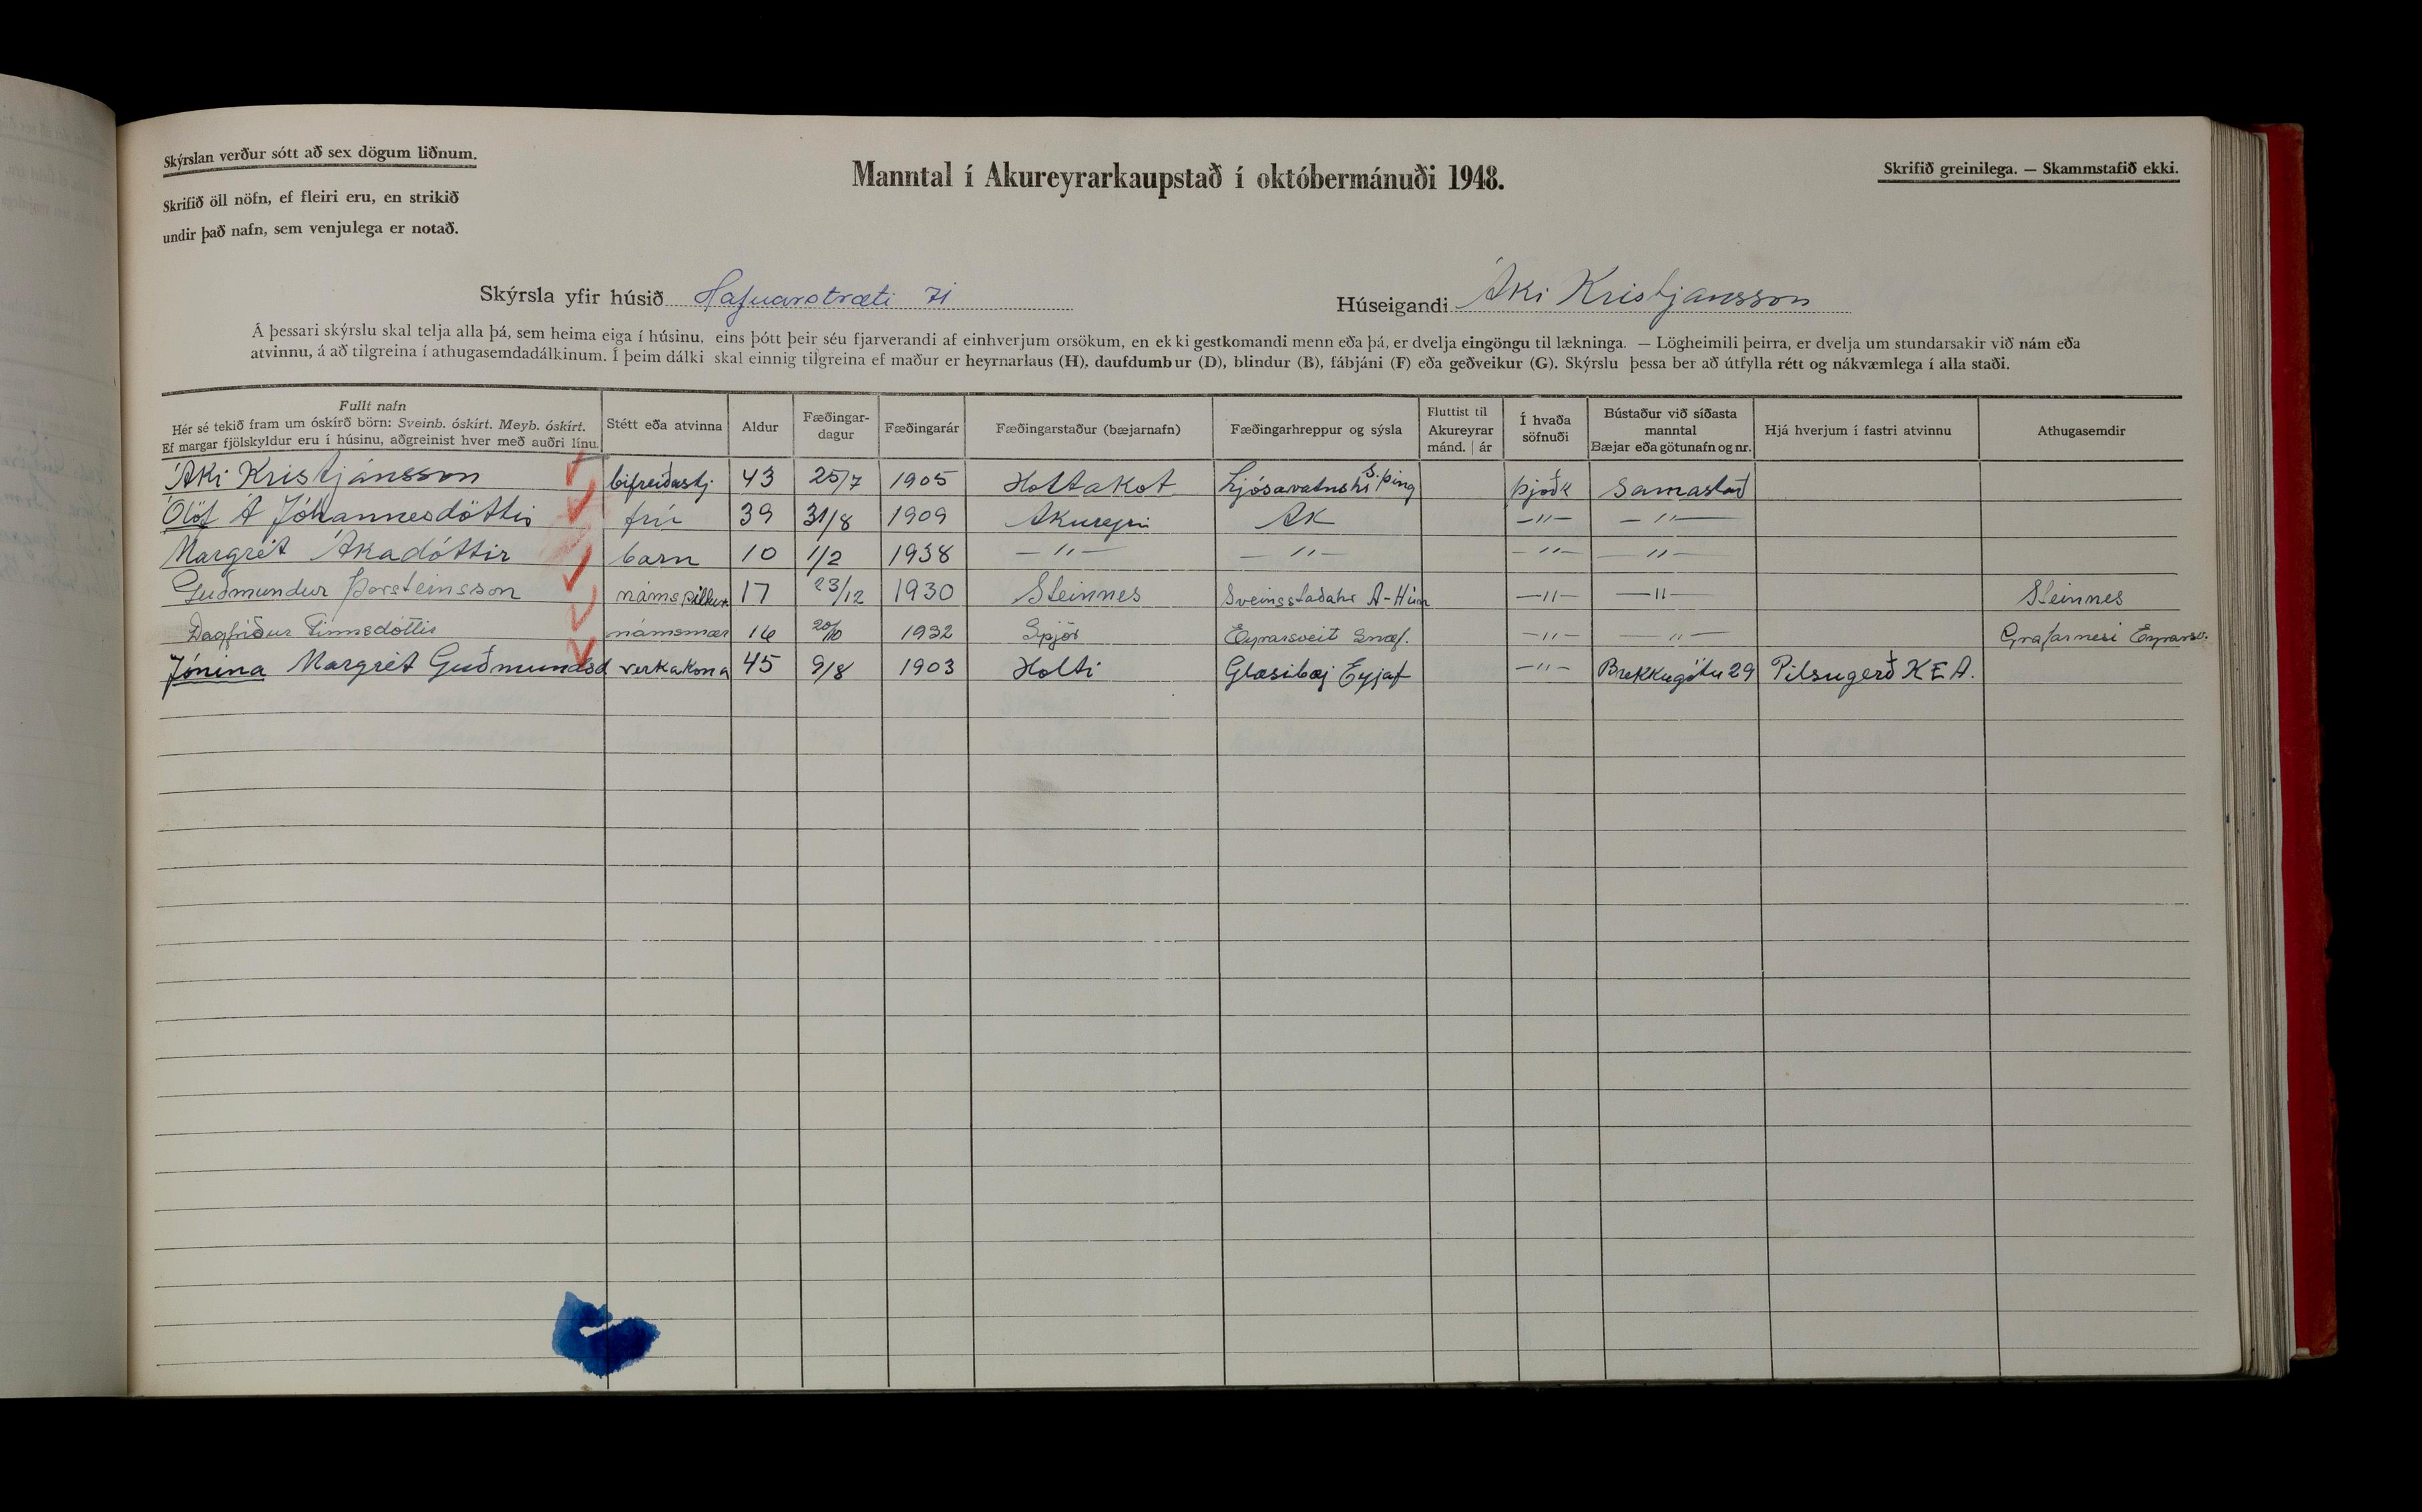 Skýrslan verður sótt að sex dögum liðnum.
Skrifið öll nöfn, ef fleiri eru, en strikið
undir það nafn, sem venjulega er notað.
Manntal í Akureyrarkaupstað í októbermánuði 1948.
Skrifið greinilega. — Skammstafið ekki.
Skýrsla yfir húsið Hafnarstræti 71
Húseigandi Áki Kristjansson
Á þessari skýrslu skal telja alla þá, sem heima eiga í húsinu, eins þótt þeir séu fjarverandi af einhverjum orsökum, en ekki gestkomandi menn eða þá, er dvelja eingöngu til lækninga. — Lögheimili þeirra, er dvelja um stundarsakir við nám eða
atvinnu, á að tilgreina í athugasemdadálkinum. Í þeim dálki skal einnig tilgreina ef maður er heyrnarlaus (H), daufdumbur (D), blindur (B), fábjáni (F) eða geðveikur (G). Skýrslu þessa ber að útfylla rétt og nákvæmlega í alla staði.
Fullt nafn
Hér sé tekið fram um óskírð börn: Sveinb. óskírt. Meyb. óskírt.
Ef margar fjölskyldur eru í húsinu, aðgreinist hver með auðri línu.
Stétt eða atvinna
Aldur
Fæðingar-
dagur
Fæðingarár
Fæðingarstaður (bæjarnafn)
Fæðingarhreppur og sýsla
Fluttist til
Akureyrar
mánd. | ár
Í hvaða
söfnuði
Bústaður við síðasta
manntal
Bæjar eða götunafn og nr.
Hjá hverjum í fastri atvinnu
Athugasemdir
Áki Kristjánsson bifreiðastj. 43 25/7 1905 Holtakot Ljósavatnshr S.þing þjóðk Samastað
Ólöf Á Jóhannesdóttir frú 39 31/8 1909 Akureyri AK —"— —"—
Margrét Ákadóttir barn 10 1/2 1938 —"— —"— —"— —"—
Guðmundur Þorsteinsson námspiltur 17 23/12 1930 Steinnes Sveinsstaðahr A-Hún —"— —"— Steinnes
Dagfríður Finnsdóttir námsmær 16 20/10 1932 Spjör Eyrarsveit Snæf. —"— —"— Grafarnesi Eyrarsv.
Jónina Margrét Guðmundsd verkakona 45 9/8 1903 Holti Glæsibæj Eyjaf —"— Brekkugötu 29 Pilsugerð K E A.